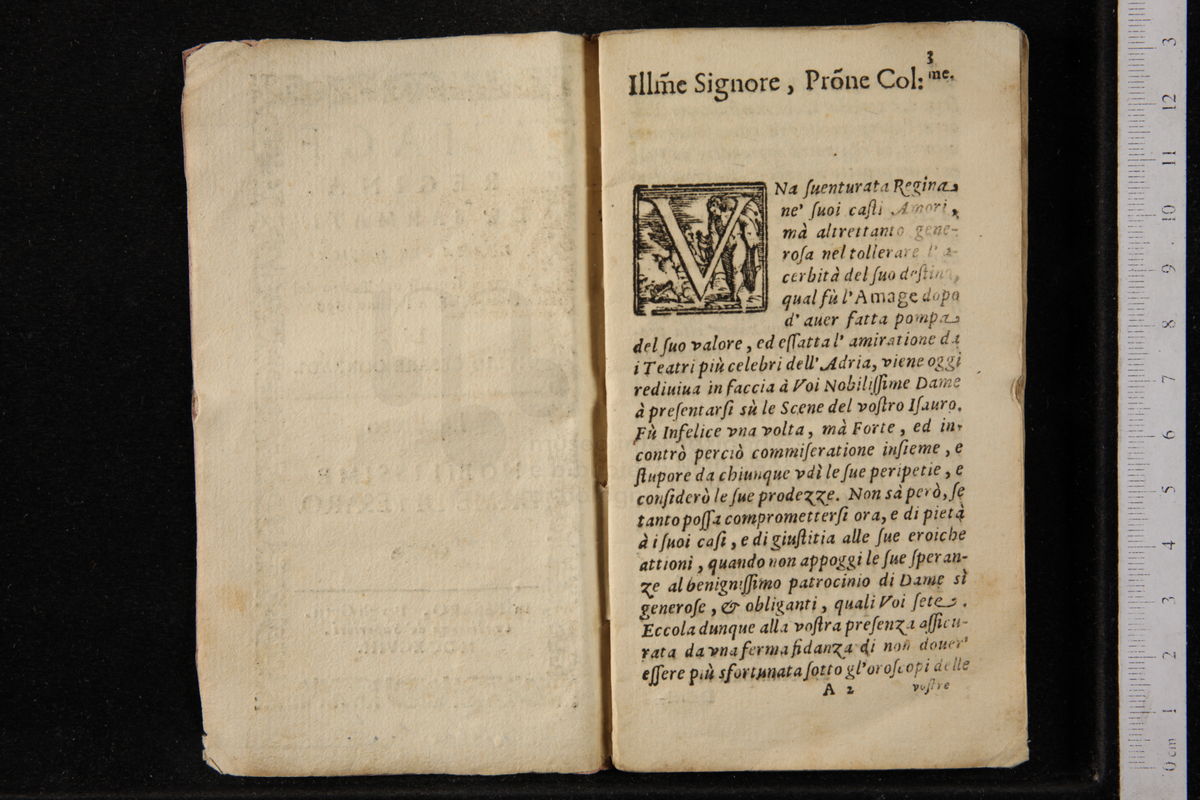 3
Illm̃e Signore, Prõne Col:me.
VNa ſuenturata Regina
ne' ſuoi caſti Amori,
mà altrettanto gene-
roſa nel tollerare l'a-
cerbità del ſuo deſtino,
qual fù l'Amage dopo
d'auer fatta pompa
del ſuo valore, ed eſſatta l'amiratione da
i Teatri più celebri dell'Adria, viene oggi
rediuiua in faccia à Voi Nobiliſſime Dame
à preſentarſi sù le Scene del voſtro Iſauro.
Fù Infelice vna volta, mà Forte, ed in-
contrò perciò commiſeratione inſieme, e
ſtupore da chiunque vdì le ſue peripetie, e
conſiderò le ſue prodezze. Non sà però, ſe
tanto poſſa comprometterſi ora, e di pietà
à i ſuoi caſi, e di giuſtitia alle ſue eroiche
attioni, quando non appoggi le ſue ſperan-
ze al benigniſſimo patrocinio di Dame sì
generoſe, & obliganti, quali Voi ſete.
Eccola dunque alla voſtra preſenza aſſicu-
rata da vna ferma fidanza di non douer
eſſere più sfortunata ſotto gl'oroſcopi delle
A 2 voſtre